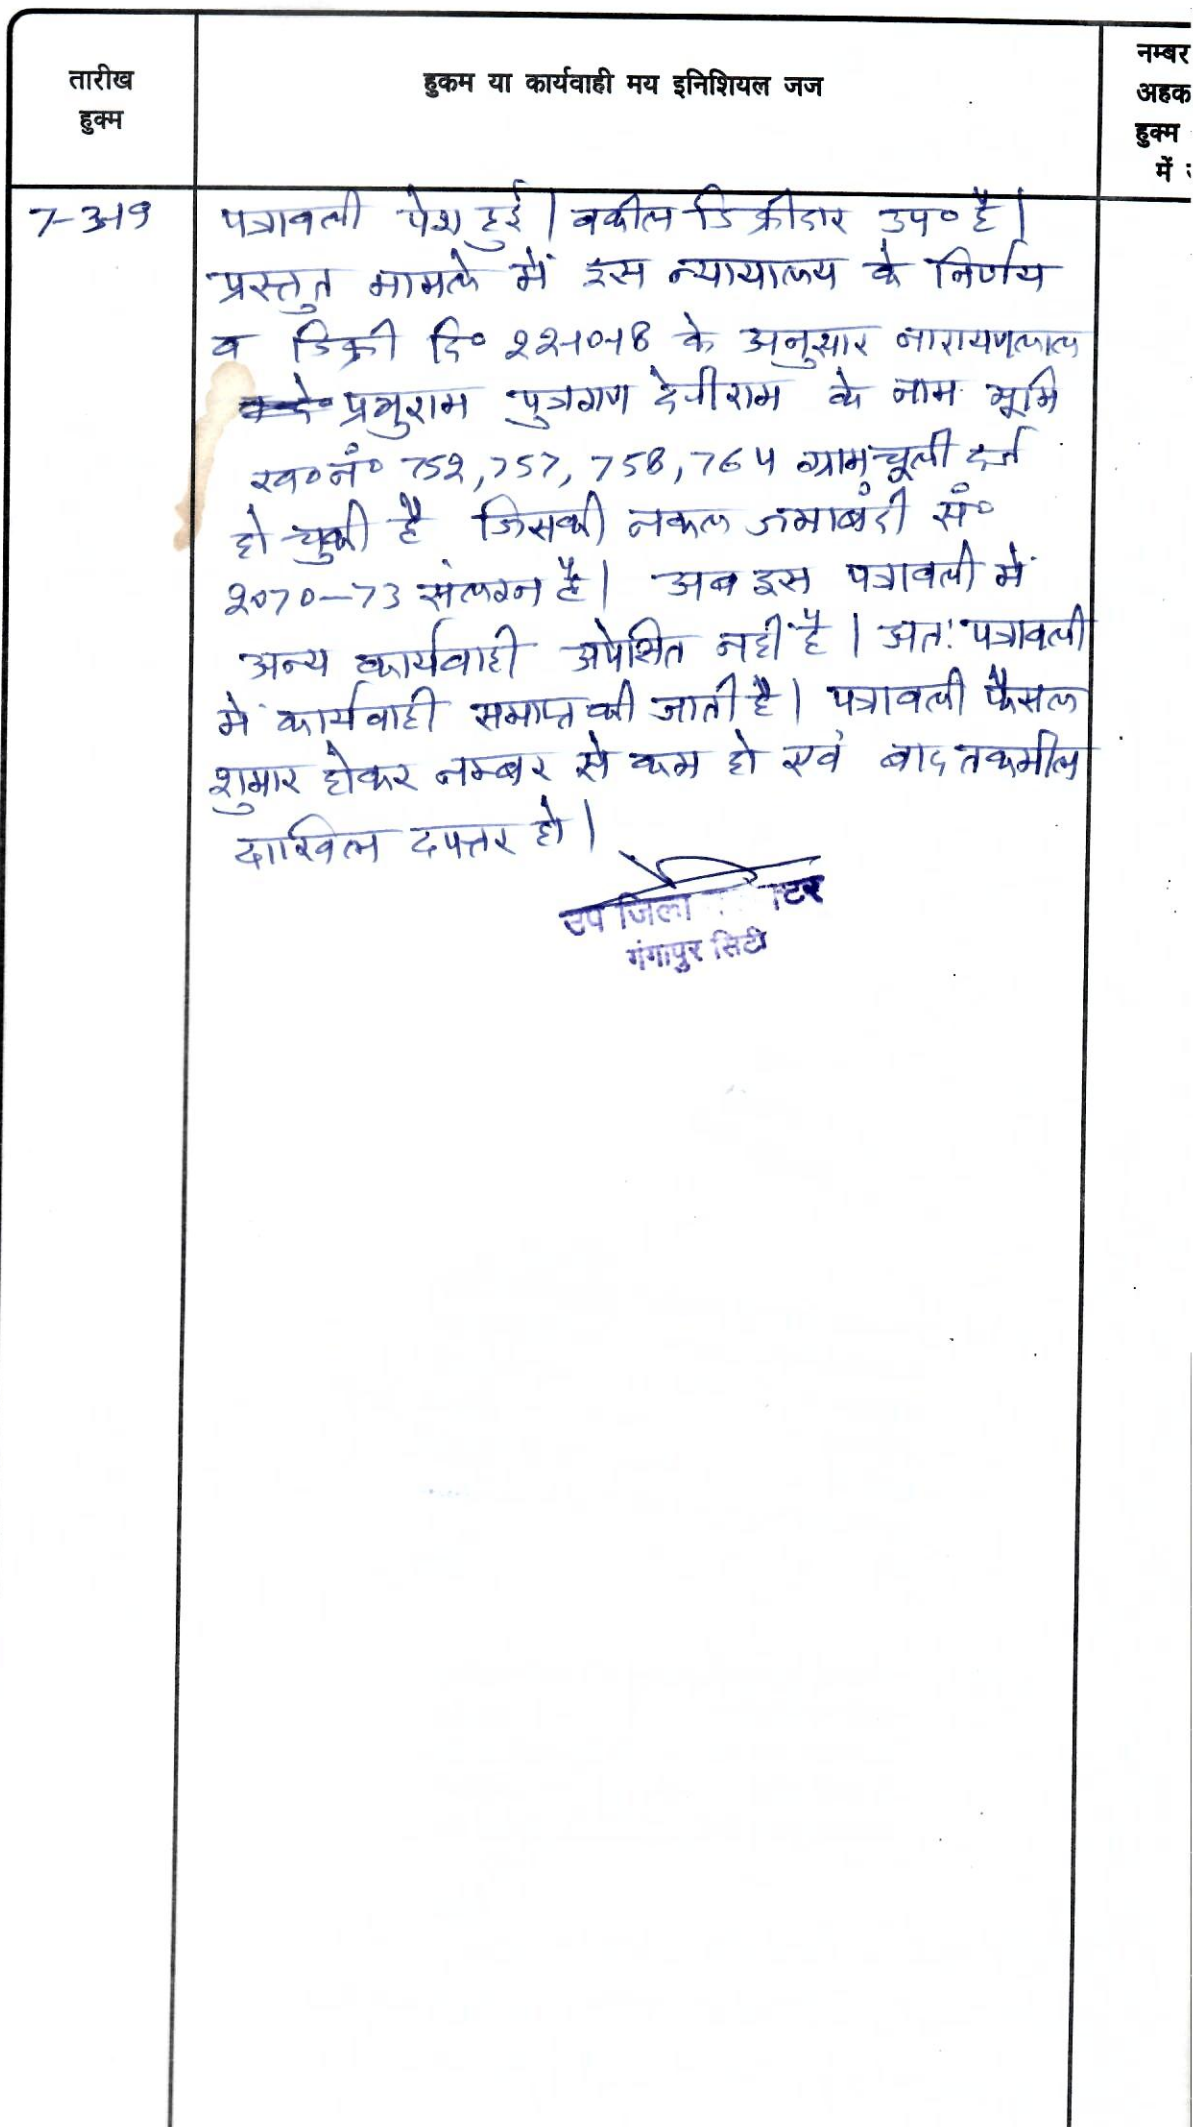 तारीख
हुक्म
हुकम या कार्यवाही मय इनिशियल जज
नम्बर
अहक
हुक्म
में
7-3-19
पत्रावली पेश हुई । वकील डिक्रीदार उप० है ।
प्रस्तुत मामले में इस न्यायालय के निर्णय
व डिक्री दि० 22-10-18 के अनुसार नारायणलाल
प्रभुराम पुत्रगण देवीराम के नाम भूमि
ख०नं० 752, 757, 758, 764 ग्राम चूली दर्ज
हो चुकी है जिसकी नकल जमाबंदी सं०
2070-73 संलग्न है । अब इस पत्रावली में
अन्य कार्यवाही अपेक्षित नहीं है । अतः पत्रावली
में कार्यवाही समाप्त की जाती है । पत्रावली फैसल
शुमार होकर नम्बर से कम हो एवं बाद तकमील
दाखिल दफ्तर हो ।
उप जिला टर
गंगापुर सिटी